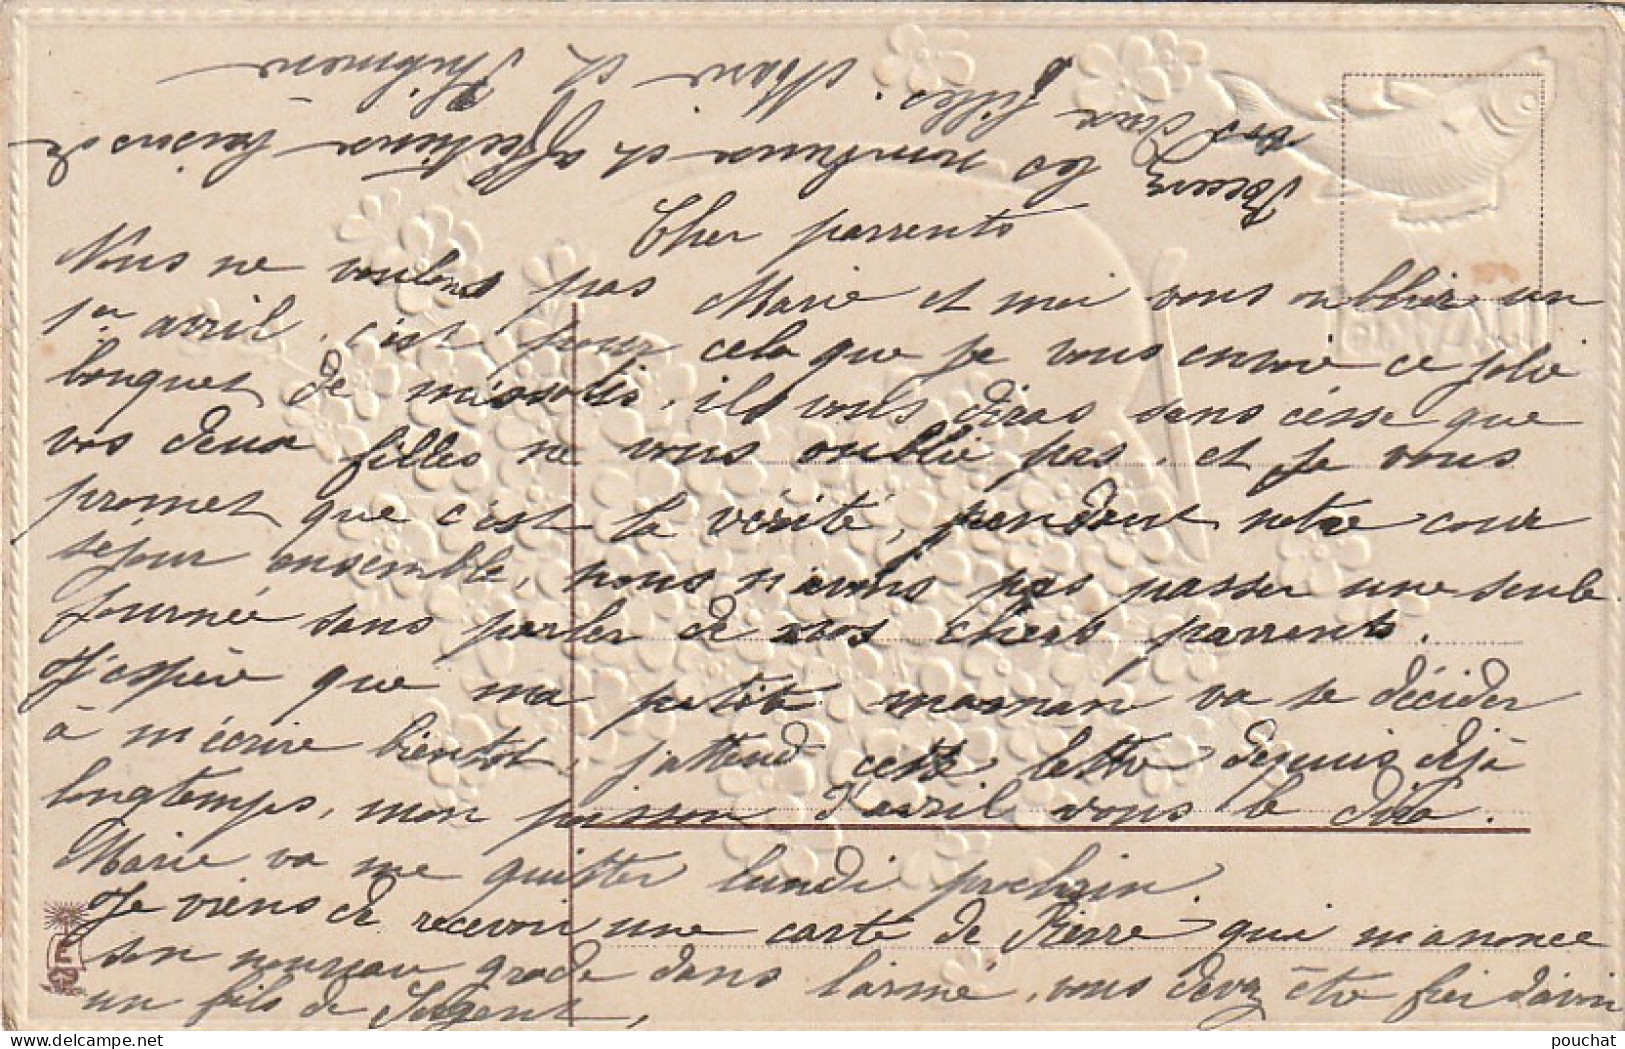 Cher parrents
Nous ne voulons pas Marie et moi vous oublier un
1er avril, c'est pour cela que je vous envoie ce jolie
bouquet de miosotis, ils vous diras sans césse que
vos deux filles ne vous oublie pas, et je vous
promet que c'est la vérité, pendant notre cour
séjour ensemble, nous n'avons pas passer une seule
journée sans parler de nos chers parrents.
J'espère que ma petite maman va se décider
à m'écrire bientot, j'attend cette lettre depuis déjà
longtemps, mon poisson d'avril vous le dira.
Marie va me quitter lundi prochain.
Je viens de recevoir une carte de Pierre qui m'anonce
son nouveau grade dans l'armé, vous devez être fier d'avoir
un fils de Sergent,
Recevez les nombreux et affectueux baisers de
vos deux filles. Marie et
pouchat